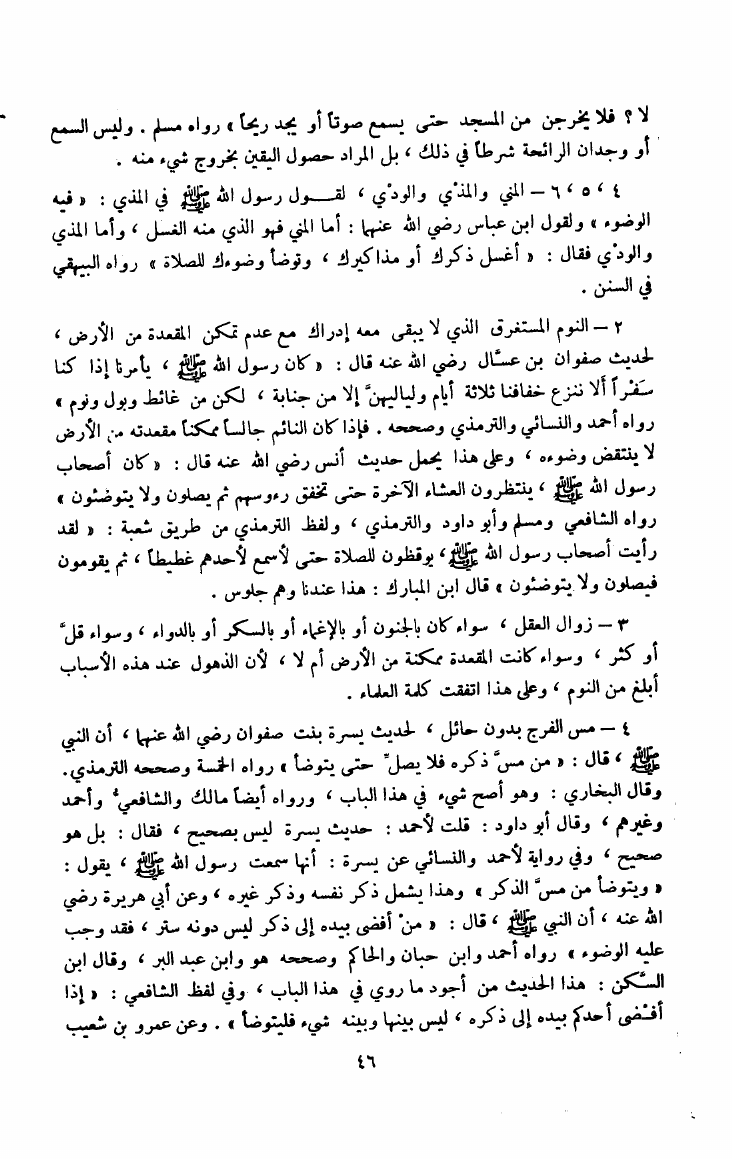 لا ؟ فلا يخرجن من المسجد حتى يسمع صوتاً أو يجد ريحاً » رواه مسلم . وليس السمع
أو وجدان الرائحة شرطاً في ذلك ، بل المراد حصول اليقين بخروج شيء منه .
٤ ، ٥ ، ٦ – المني والمذي والودي ، لقــول رسول الله ﷺ في المذي : « فيه
الوضوء » ولقول ابن عباس رضي الله عنهما : أما المني فهو الذي منه الغسل ، وأما المذي
والودْي فقال : « أغسل ذكرك أو مذاكيرك ، وتوضأ وضوءك للصلاة » رواه البيهقي
في السنن .
٢ – النوم المستغرق الذي لا يبقى معه إدراك مع عدم تمكن المقعدة من الأرض ،
لحديث صفوان بن عسَّال رضي الله عنه قال : « كان رسول الله ﷺ ، يأمرنا إذا كنا
سَفْراً ألا ننزع خفافنا ثلاثة أيام ولياليهنَّ إلا من جنابة ، لكن من غائط وبول ونوم »
رواه أحمد والنسائي والترمذي وصححه . فإذا كان النائم جالساً ممكناً مقعدته من الأرض
لا ينتقض وضوءه ، وعلى هذا يحمل حديث أنس رضي الله عنه قال : « كان أصحاب
رسول الله ﷺ ، ينتظرون العشاء الآخرة حتى تخفق رءوسهم ثم يصلون ولا يتوضئون »
رواه الشافعي ومسلم وأبو داود والترمذي ، ولفظ الترمذي من طريق شعبة : « لقد
رأيت أصحاب رسول الله ﷺ ، يوقظون للصلاة حتى لأسمع لأحدهم غطيطاً ، ثم يقومون
فيصلون ولا يتوضئون » قال ابن المبارك : هذا عندنا وهم جلوس .
٣ – زوال العقل ، سواء كان بالجنون أو بالإغماء أو بالسكر أو بالدواء ، وسواء قلَّ
أو كثر ، وسواء كانت المقعدة ممكنة من الأرض أم لا ، لأن الذهول عند هذه الأسباب
أبلغ من النوم ، وعلى هذا اتفقت كلمة العلماء .
٤ – مس الفرج بدون حائل ، لحديث يسرة بنت صفوان رضي الله عنهما ، أن النبي
ﷺ ، قال : « من مسَّ ذكره فلا يصلِّ حتى يتوضأ » رواه الخمسة وصححه الترمذي.
وقال البخاري : وهو أصح شيء في هذا الباب ، ورواه أيضاً مالك والشافعي وأحمد
وغيرهم ، وقال أبو داود : قلت لأحمد : حديث يسرة ليس بصحيح ، فقال : بل هو
صحيح ، وفي رواية لأحمد والنسائي عن يسرة : أنها سمعت رسول الله ﷺ ، يقول :
« ويتوضأ من مسَّ الذكر » وهذا يشمل ذكر نفسه وذكر غيره ، وعن أبي هريرة رضي
الله عنه ، أن النبي ﷺ ، قال : « منْ أفضى بيده إلى ذكر ليس دونه ستر ، فقد وجب
عليه الوضوء » رواه أحمد وابن حبان والحاكم وصححه هو وابن عبد البر ، وقال ابن
السَّكن : هذا الحديث من أجود ما روي في هذا الباب ، وفي لفظ الشافعي : « إذا
أفْضى أحدكم بيده إلى ذكره ، ليس بينها وبينه شيء فليتوضأ » . وعن عمرو بن شعيب
٤٦